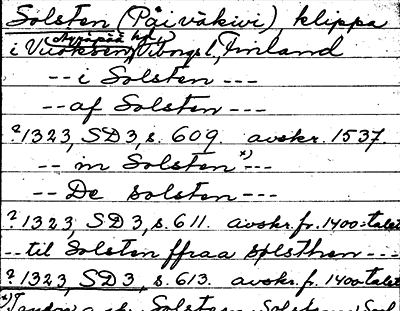 Solsten (Päiväkivi) klippa
(Äyräpää hd.)
i Vuoksen, Viborgs l, Finland
-- i Solsten ---
-- af Solsten ---
? 1323, SD 3, s. 609. avskr. 1537.
-- in Solsten *) ---
-- De Solsten ---
? 1323, SD 3, s. 611. avskr. fr. 1400-talet
-- til Solsten ffraa solsthen ---
? 1323, SD 3, s. 613. avskr. fr. 1400-talet